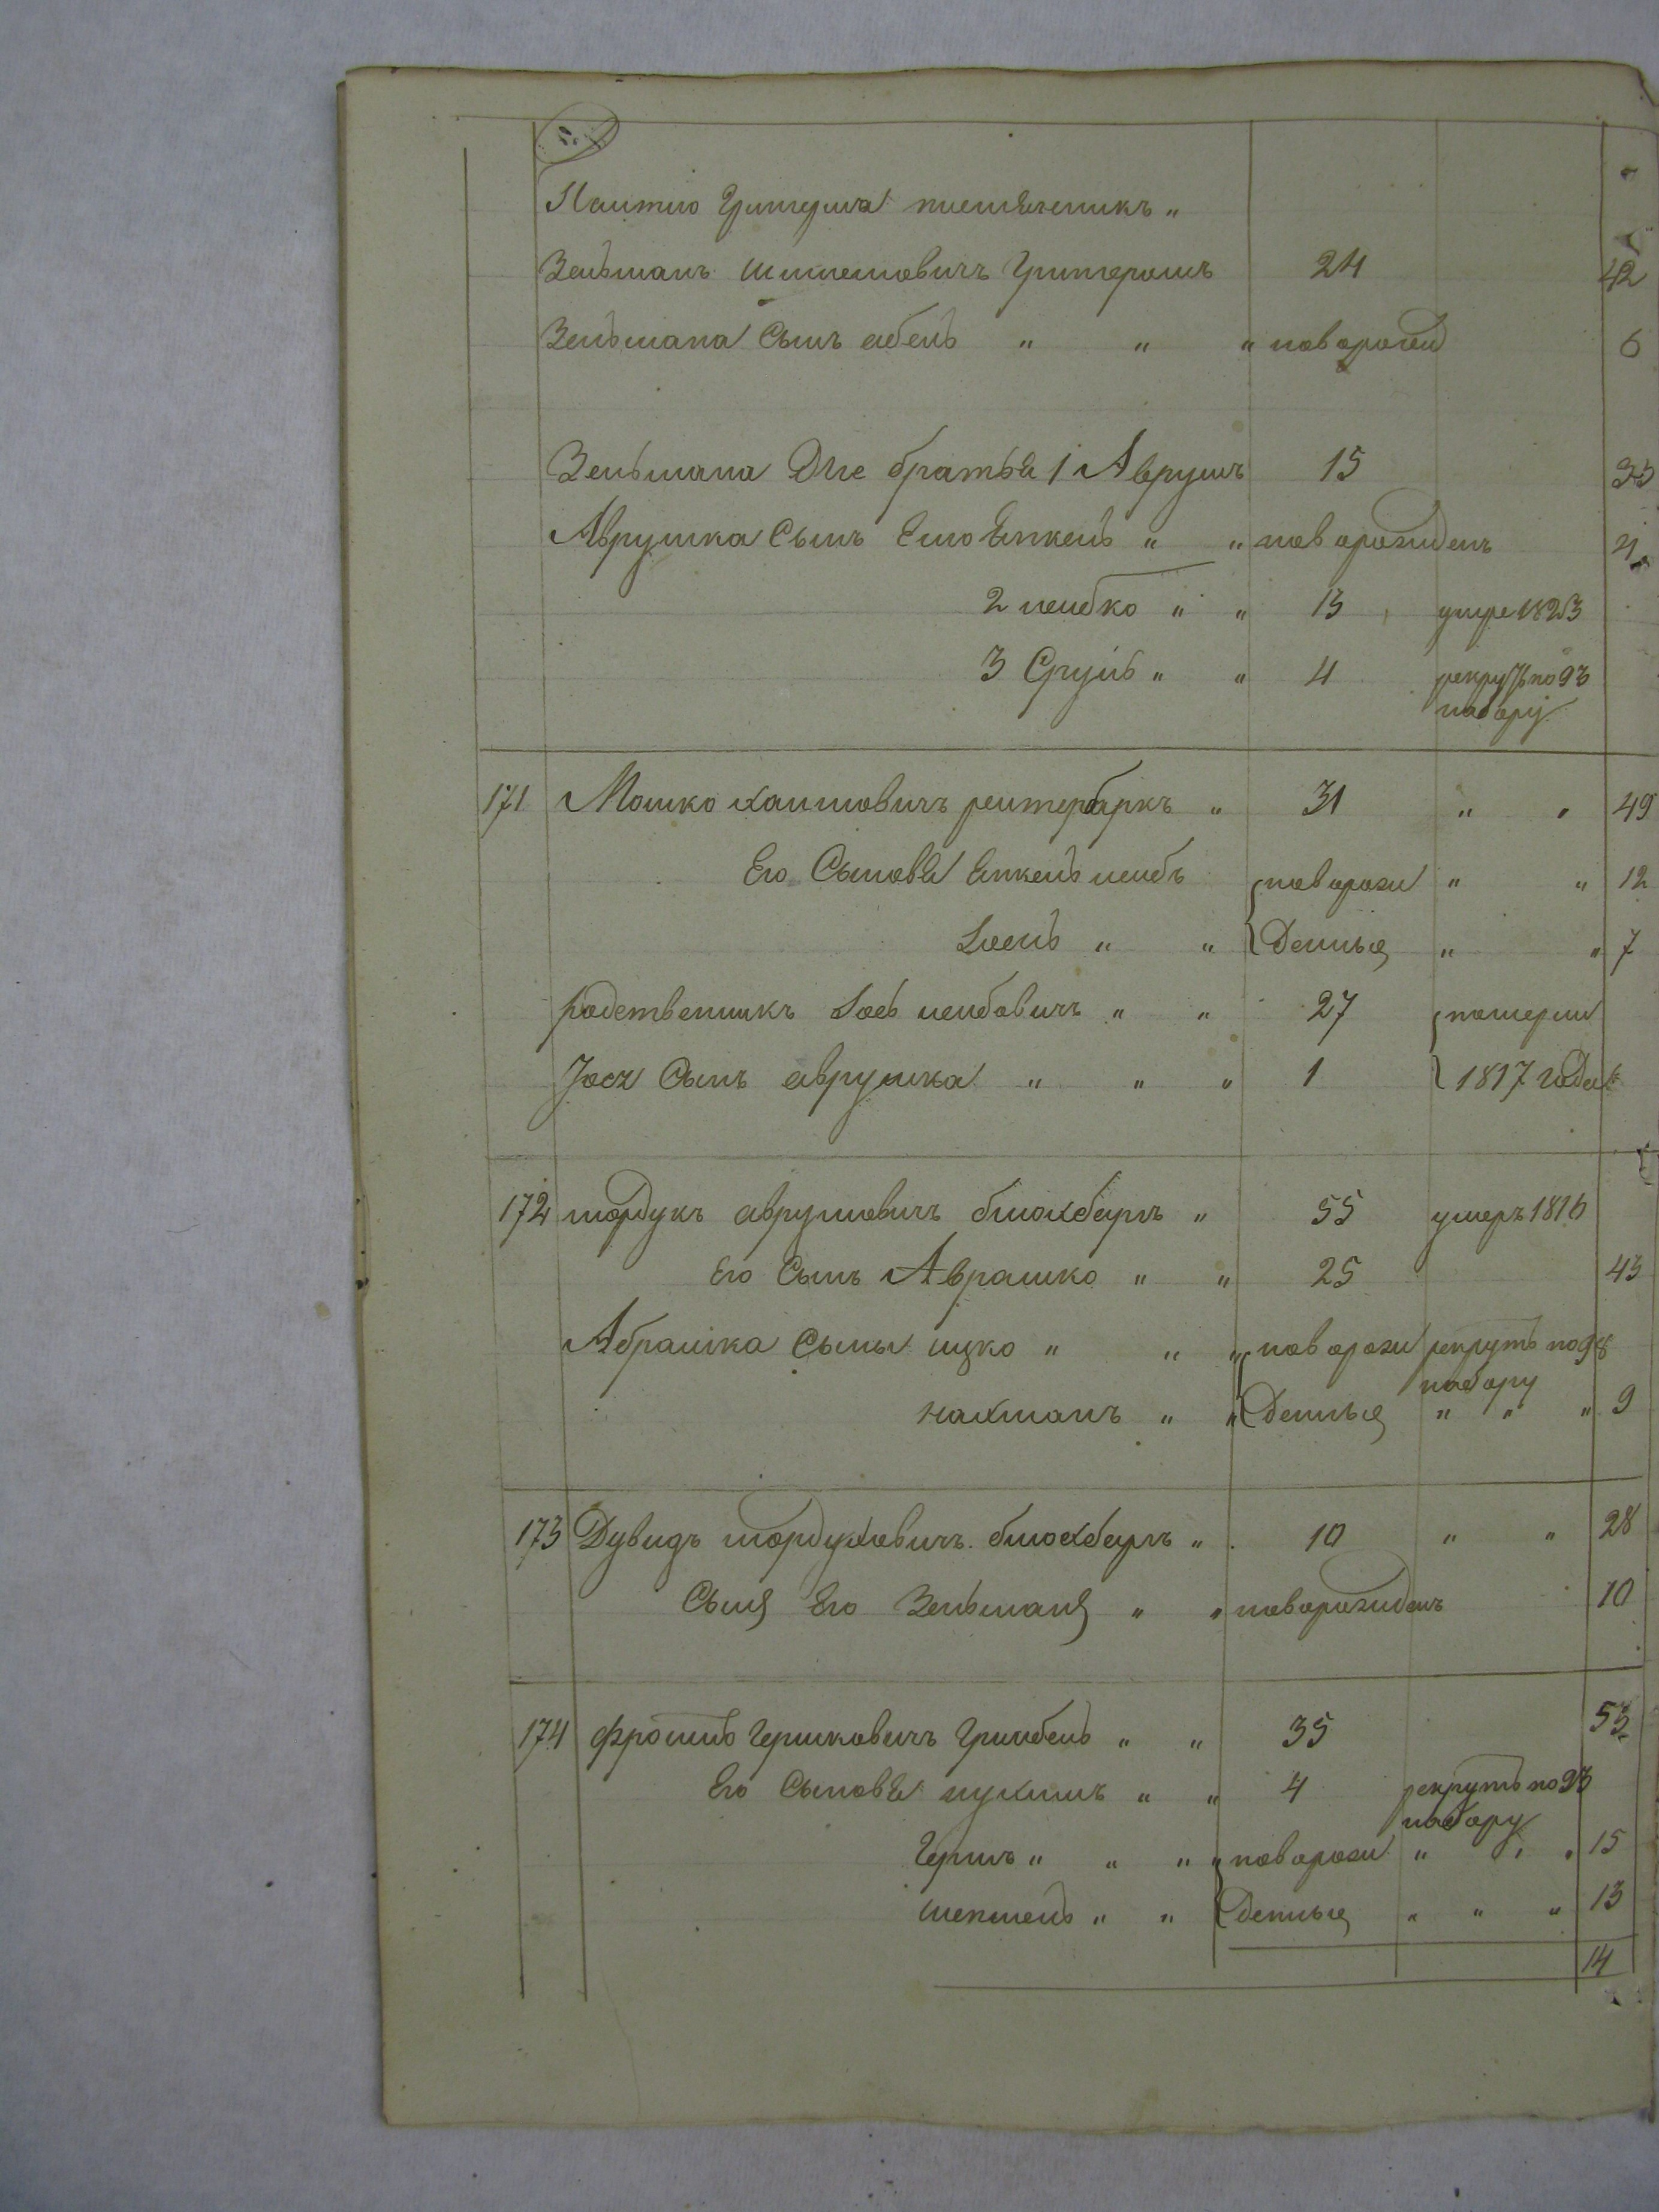 Зельманъ Шмилевичъ 24 42
Зельмана Сынъ абель " " " новорожд 6
Зельмана Две братья 1 Аврумъ 15 33
Аврумка Сынъ Янкель " " новорожденъ
2 лейбко " " 13 умре 1823
3 Сруль " " 4 рекрутъ по 93
набору
171 Мошко хаимовичъ рейтербаркъ " 31 " " 49
Его Сыновя Янкель лейбъ новорож " " 12
Іосль " " Денныя " " 7
родственникъ Іось лейбовичъ " " 27 померли
Іося Сынъ аврумка " " " 1 1817 года
172 мордухъ аврумовичъ блюхбаръ " 55 умеръ 1816
Его Сынъ Аврашко " " 25 43
Абрашка Сыны ицко " " " новорож рекрутъ по 98
набору
нахманъ " " Денныя " " " 9
173 Дувидъ мордуховичъ блюхбаръ " 10 " " 28
Сынъ Его Зельманъ " " новорожденъ 10
174 Фроимъ Гершковичъ Гринбель " " 35 53
Его Сыновя нухимъ " " 4 рекрутъ по 93
набору
Гершъ " " " " новорож " " " 15
шепшель " " Денныя " " " 13
14